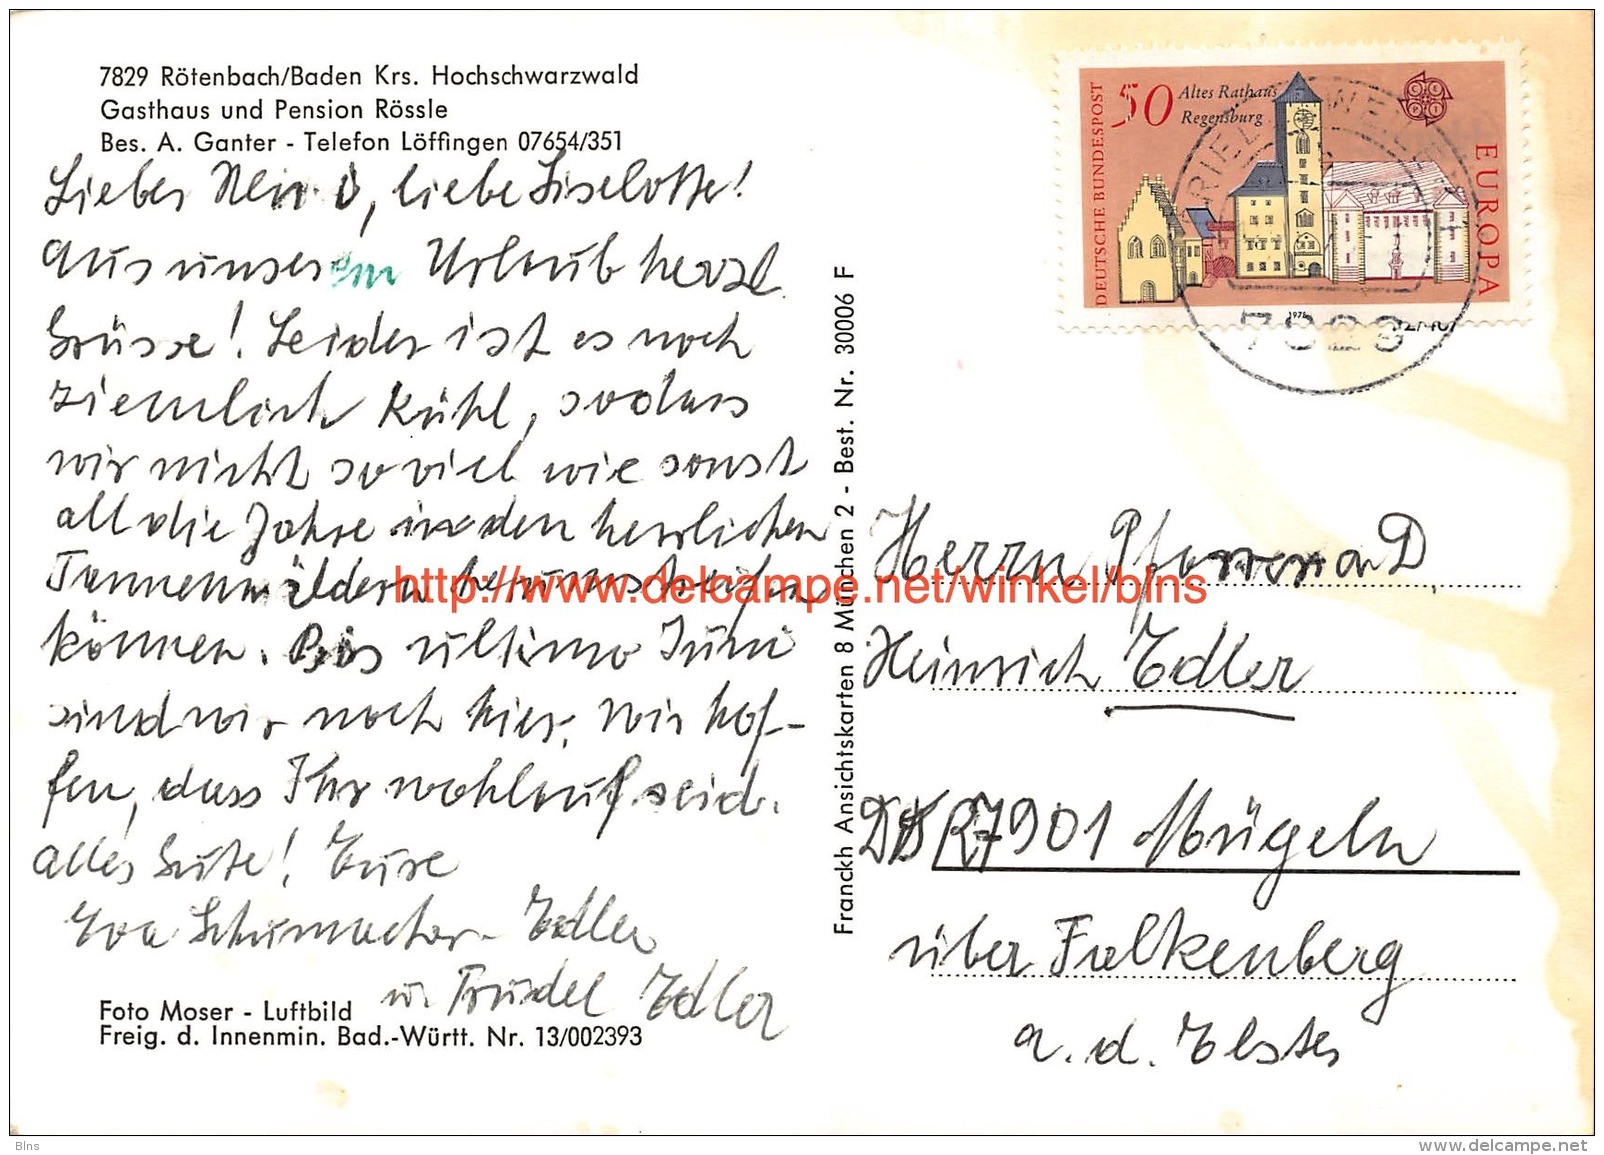 7829 Rötenbach/Baden Krs. Hochschwarzwald
Gasthaus und Pension Rössle
Bes. A. Ganter - Telefon Löffingen 07654/351
Lieber, liebe Liselotte!
Aus unserem Urlaub herzl.
Grüsse! Leider ist es noch
ziemlich kühl, sodass
wir nicht so viel wie sonst
all die Jahre in den herrlichen
Tannenwäldern herumstreifen
können. Bis ultimo Juni
sind wir noch hier. Wir hof-
fen, dass Ihr wohlauf seid.
Alles Gute! Eure
Eva Schumacher-Edler
u. Trudel Edler
Foto Moser - Luftbild
Freig. d. Innenmin. Bad.-Württ. Nr. 13/002393
Franckh Ansichtskarten 8 München 2 - Best. Nr. 30006 F
DEUTSCHE BUNDESPOST
50 Altes Rathaus
Regensburg
CEPT
EUROPA
1978
7829
Herrn Pfarrer a. D.
Heinrich Edler
DDR 7901 Mügeln
über Falkenberg
a. d. Elster
http://www.delcampe.net/winkel/blns
Blns
www.delcampe.net